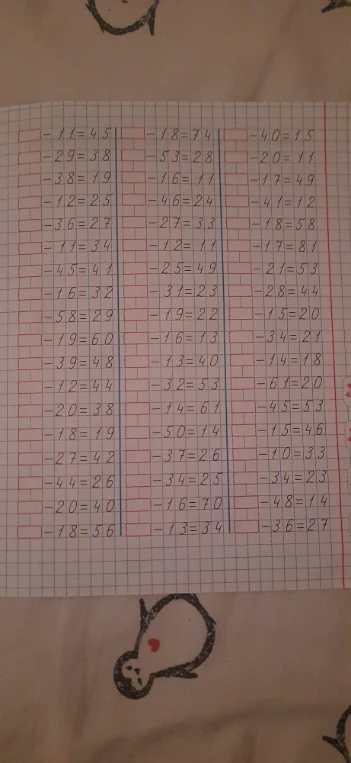 -11=45
-29=38
-38=19
-12=25
-36=27
-11=34
-45=41
-16=32
-58=29
-19=60
-39=48
-12=44
-20=38
-18=19
-27=42
-44=26
-20=40
-18=56
-18=74
-53=28
-16=11
-46=24
-27=33
-12=11
-25=49
-31=23
-19=22
-16=13
-13=40
-32=53
-14=61
-50=14
-37=26
-34=25
-16=70
-13=34
-40=15
-20=11
-17=49
-41=12
-18=58
-17=81
-21=53
-28=44
-15=20
-34=21
-14=18
-61=20
-45=53
-15=46
-10=33
-34=23
-48=14
-36=27